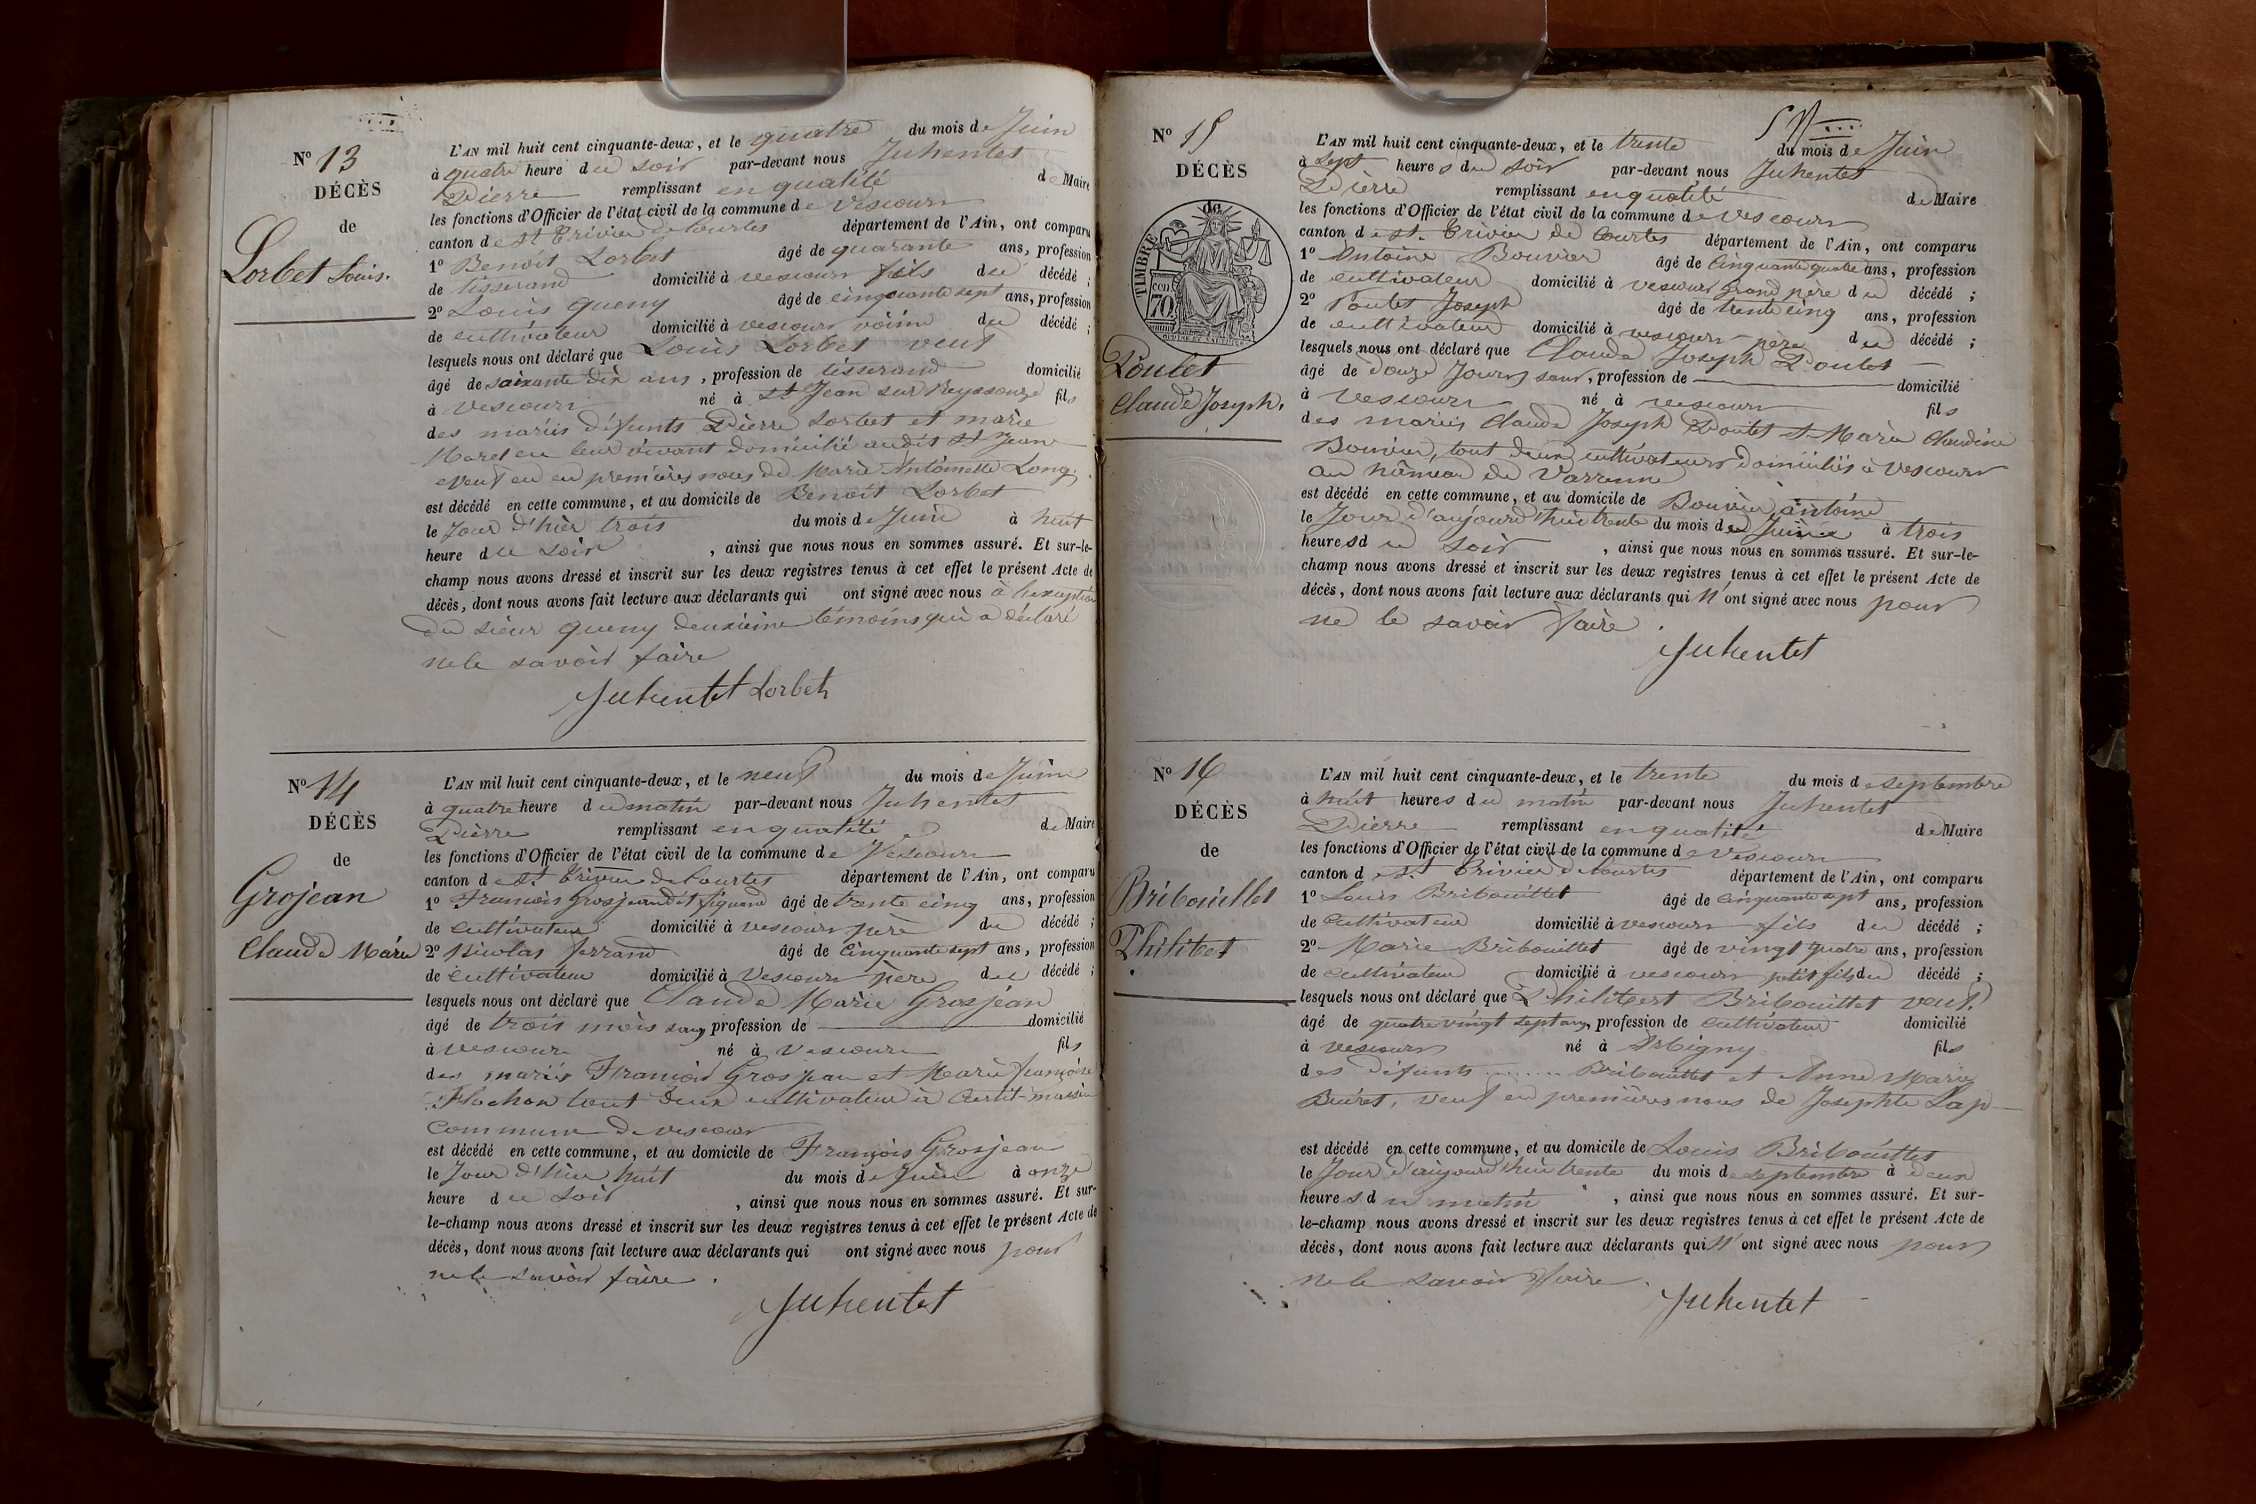 N° 13
DÉCÈS
de
Lorbet Louis.
L'AN mil huit cent cinquante-deux, et le quatre du mois de Juin
à quatre heure du soir par-devant nous Juhentet
Pierre remplissant en qualité de Maire
les fonctions d'Officier de l'état civil de la commune de Vescours
canton de St Trivier de Courtes département de l'Ain, ont comparu
1° Benoit Lorbet âgé de quarante ans, profession
de tisserand domicilié à vescours fils du décédé ;
2° Louis queny âgé de cinquante sept ans, profession
de cultivateur domicilié à vescours voisin du décédé ;
lesquels nous ont déclaré que Louis Lorbet veuf
âgé de soixante dix ans, profession de tisserand domicilié
à Vescours né à St Jean sur Reyssouze fils
des mariés défunts Pierre Lorbet et marie
Morel en leur vivant domicilié audit St Jean
veuf en en premières nous de Marie Antoinette Long
est décédé en cette commune, et au domicile de Benoit Lorbet
le Jour d'hier trois du mois de Juin à huit
heure du soir , ainsi que nous nous en sommes assuré. Et sur-le-
champ nous avons dressé et inscrit sur les deux registres tenus à cet effet le présent Acte de
décès, dont nous avons fait lecture aux déclarants qui ont signé avec nous à l'exception
du sieur queny deuxième témoins qui a déclaré
ne le savoir faire
Juhentet Lorbet
N° 14
DÉCÈS
de
Grojean
Claude Marie
L'AN mil huit cent cinquante-deux, et le neuf du mois de Juin
à quatre heure du matin par-devant nous Juhentet
Pierre remplissant en qualité de Maire
les fonctions d'Officier de l'état civil de la commune de Vescours
canton de St Trivier de Courtes département de l'Ain, ont comparu
1° François Grosjean dit âgé de trente cinq ans, profession
de cultivateur domicilié à vescours père du décédé ;
2° Nicolas ferrand âgé de cinquante sept ans, profession
de cultivateur domicilié à Vescours père du décédé ;
lesquels nous ont déclaré que Claude Marie Grosjean
âgé de trois mois sans profession de domicilié
à vescours né à Vescours fils
des mariés François Grosjean et Marie françoise
Flochon tout deux cultivateur à
commune de vescours
est décédé en cette commune, et au domicile de François Grosjean
le Jour d'hier huit du mois de Juin à onze
heure du soir , ainsi que nous nous en sommes assuré. Et sur-
le-champ nous avons dressé et inscrit sur les deux registres tenus à cet effet le présent Acte de
décès, dont nous avons fait lecture aux déclarants qui ont signé avec nous pour
ne le savoir faire .
Juhentet
N° 15
DÉCÈS
de
TIMBRE
70 cen
Poulet
Claude Joseph.
L'AN mil huit cent cinquante-deux, et le trente du mois de Juin
à sept heures du soir par-devant nous Juhentet
Pierre remplissant en qualité de Maire
les fonctions d'Officier de l'état civil de la commune de Vescours
canton de St. Trivier de Courtes département de l'Ain, ont comparu
1° Antoine Bouvier âgé de cinquante quatre ans, profession
de cultivateur domicilié à vescours grand père du décédé ;
2° Poulet Joseph âgé de trente cinq ans, profession
de cultivateur domicilié à vescours père du décédé ;
lesquels nous ont déclaré que Claude Joseph Poulet
âgé de douze Jours sans, profession de domicilié
à Vescours né à vescours fils
des mariés Claude Joseph Poulet et Marie Claudine
Bouvier, tout deux cultivateurs domiciliés à Vescours
au hameau de Varenne
est décédé en cette commune, et au domicile de Bouvier antoine
le Jour d'aujourd'hui trente du mois de Juin à trois
heures du soir , ainsi que nous nous en sommes assuré. Et sur-le-
champ nous avons dressé et inscrit sur les deux registres tenus à cet effet le présent Acte de
décès, dont nous avons fait lecture aux déclarants qui n'ont signé avec nous pour
ne le savoir faire .
Juhentet
N° 16
DÉCÈS
de
Bribouillet
Philibet
L'AN mil huit cent cinquante-deux, et le trente du mois de septembre
à huit heures du matin par-devant nous Juhentet
Pierre remplissant en qualité de Maire
les fonctions d'Officier de l'état civil de la commune de Vescours
canton de St. Trivier de Courtes département de l'Ain, ont comparu
1° Louis Bribouillet âgé de cinquante sept ans, profession
de cultivateur domicilié à vescours fils du décédé ;
2° Marie Bribouillet âgé de vingt quatre ans, profession
de cultivateur domicilié à vescours petit fils du décédé ;
lesquels nous ont déclaré que Philibert Bribouillet veuf
âgé de quatre vingt sept ans, profession de cultivateur domicilié
à vescours né à Arbigny fils
des défunts ........ Bribouillet et Anne Marie
veuf en premières nous de Josephte Lap
est décédé en cette commune, et au domicile de Louis Bribouillet
le Jour d'aujourd'hui trente du mois de septembre à deux
heures du matin , ainsi que nous nous en sommes assuré. Et sur-
le-champ nous avons dressé et inscrit sur les deux registres tenus à cet effet le présent Acte de
décès, dont nous avons fait lecture aux déclarants qui n'ont signé avec nous pour
ne le savoir faire .
Juhentet